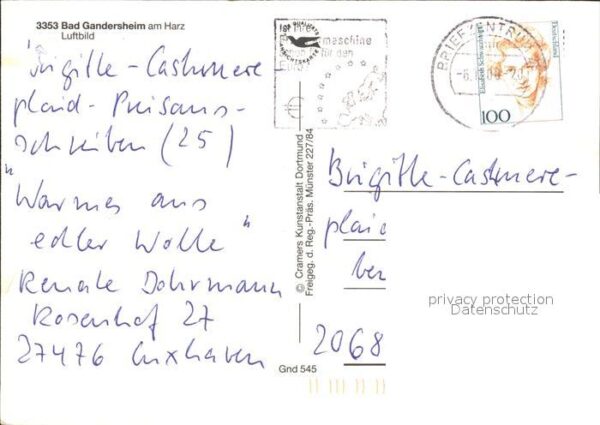 3353 Bad Gandersheim am Harz
Luftbild
Brigitte-Cashmere
plaid-Preisaus-
schreiben (25)
"Warmes aus
edler Wolle"
Renate Dohrmann
Rosenhof 27
27476 Cuxhaven
© Cramers Kunstanstalt Dortmund
Freigeg. d. Reg.-Präs. Münster 227/84
Gnd 545
maschine
für den
BRIEFZENTRUM
Deutschland
100
Brigitte-Cashmere-
plaid
ben
2068
privacy protection
Datenschutz